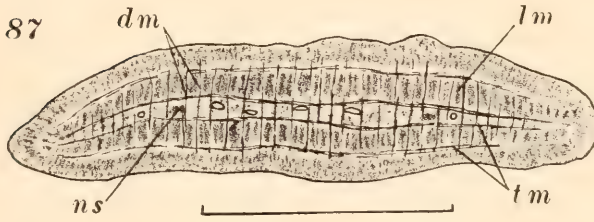 87
dm
lm
ns
tm